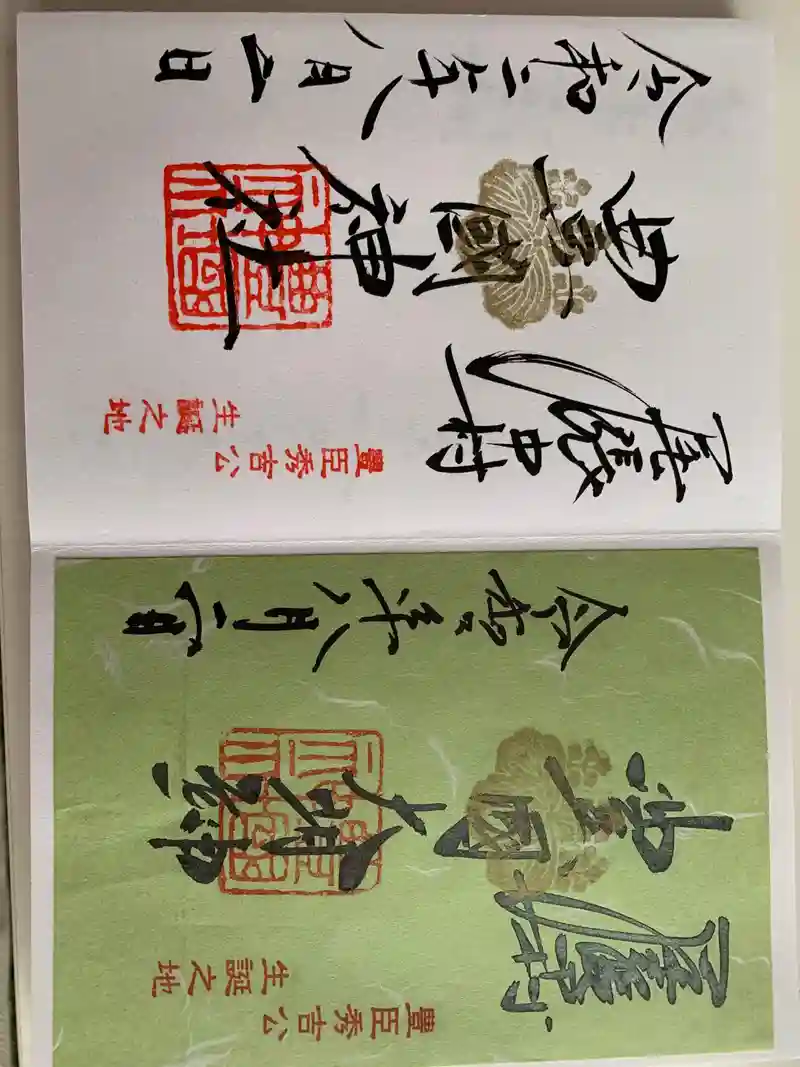 尾張中村
豊臣秀吉公
生誕之地
豊國大明神
令和二年八月二日
尾張中村
豊臣秀吉公
生誕之地
豊國神社
令和二年八月二日